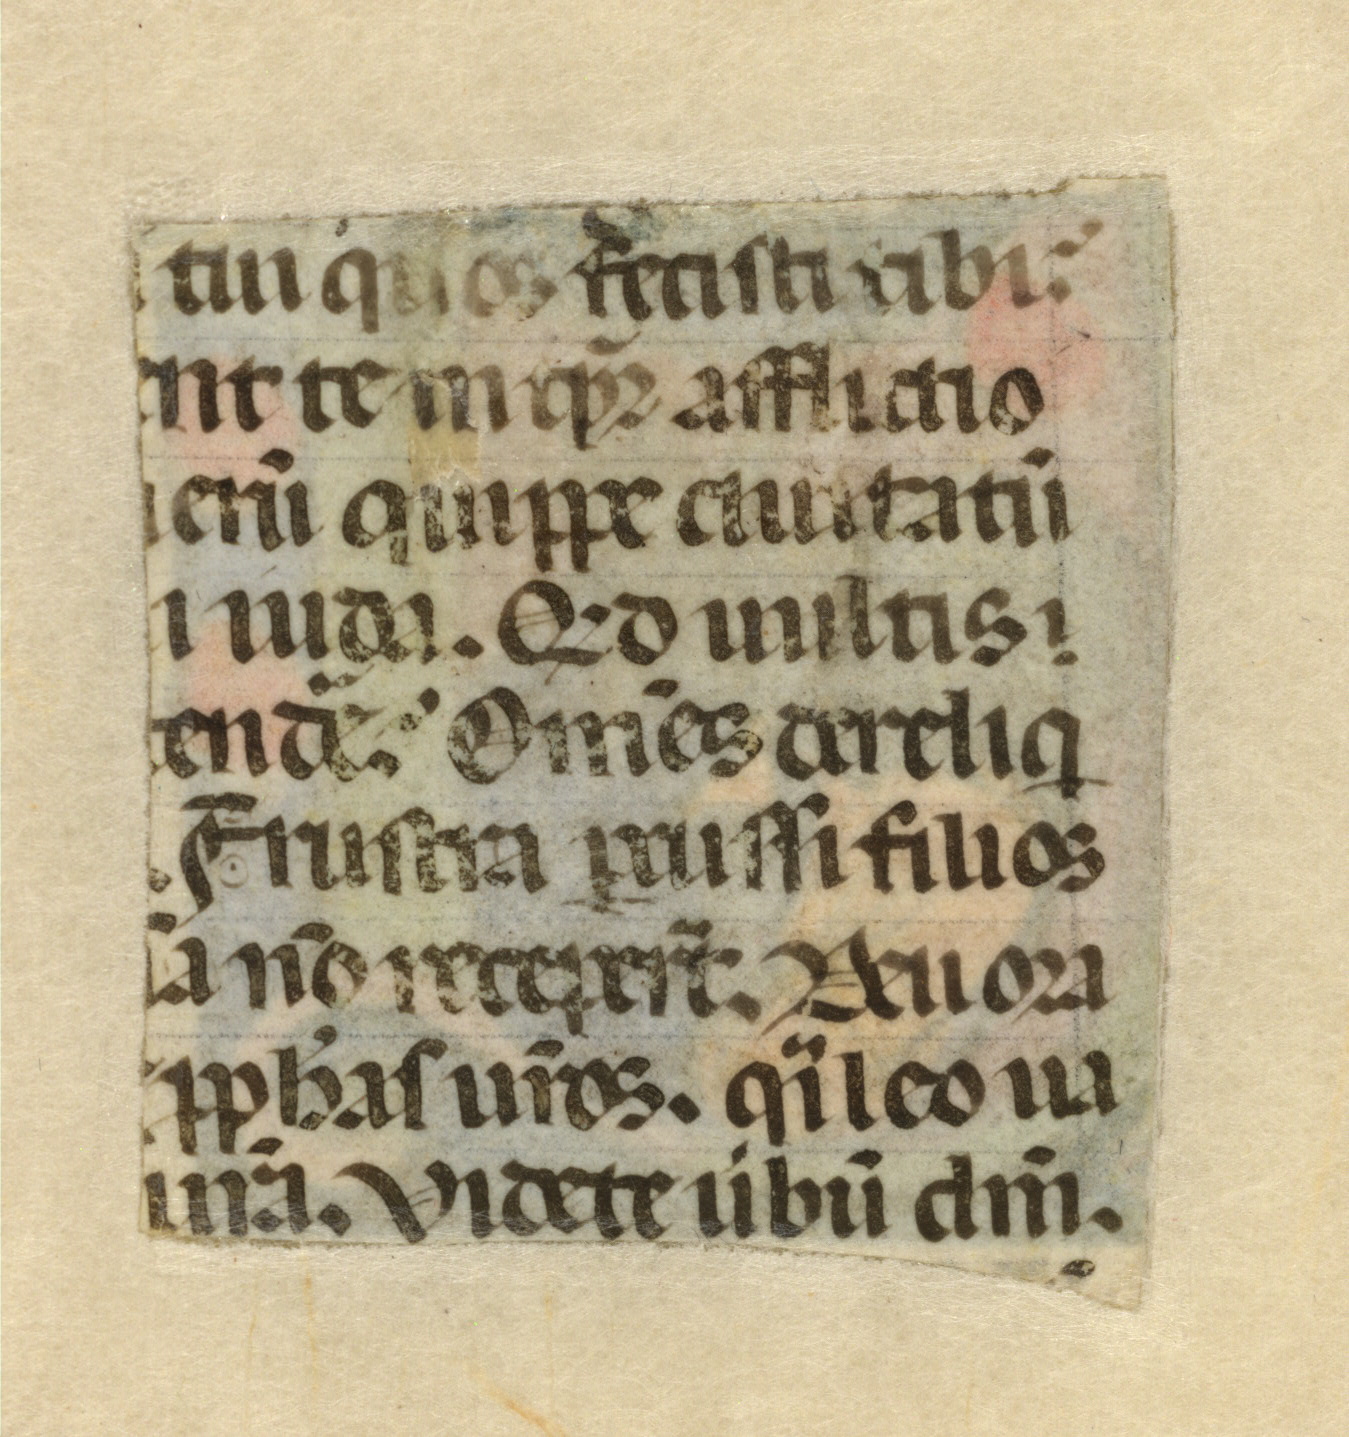 tui quos fecisti tibi?
ent te in tp̄r afflictio
erū quippe ciuitatū
i iuda. Qd uultis i
tend̄e? Om̄es dereliq
. Frustra ꝑcussi filios
a nō receper̄t. Deuora
pphas ur̄os. q̄i leo ua
ur̄a. Videte u̇bū dn̄i.